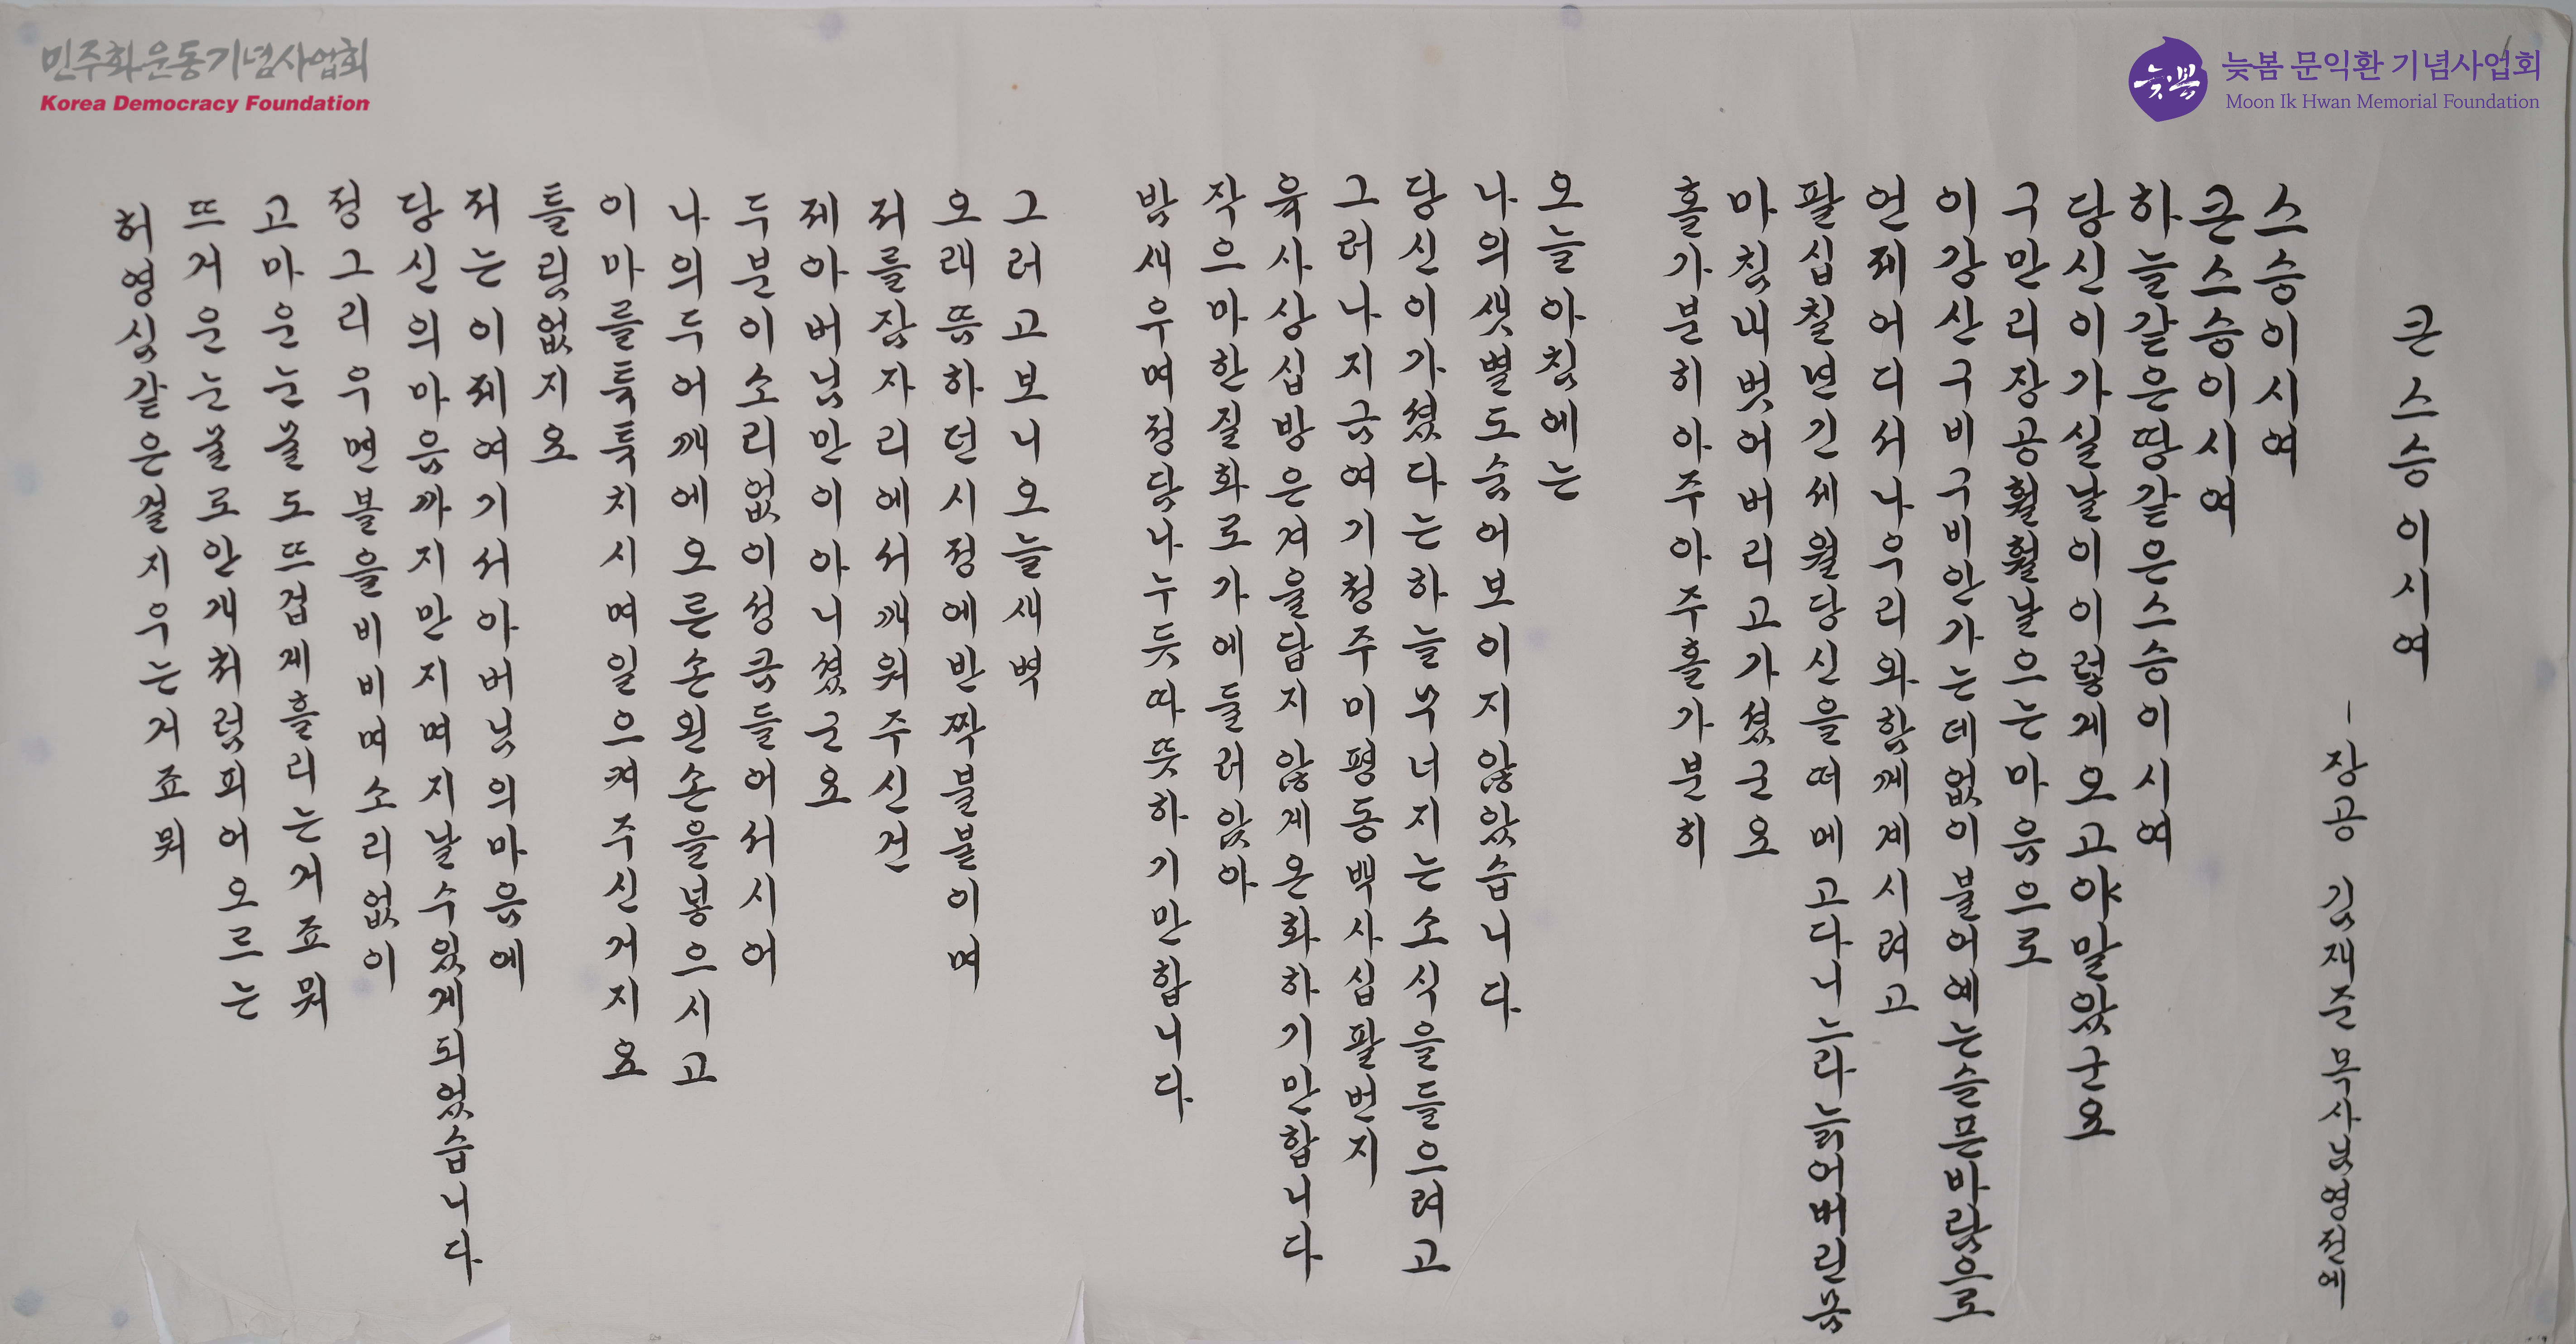 민주화운동기념사업회
Korea Democracy Foundation
늦봄
늦봄 문익환 기념사업회
Moon Ik Hwan Memorial Foundation
큰 스승이시여
—장공 김재준 목사님 영전에
스승이시여
큰스승이시여
하늘같은땅같은스승이시여
당신이가실날이이렇게오고야말았군요
구만리장공훨훨날으는마음으로
이강산구비구비안가는데없이불어예는슬픈바람으로
언제어디서나우리와함께계시려고
팔십칠년긴세월당신을떠메고다니느라늙어버린몸
마침내벗어버리고가셨군요
홀가분히아주아주홀가분히
오늘아침에는
나의샛별도숨어보이지않았습니다
당신이가셨다는하늘무너지는소식을들으려고
그러나지금여기청주미평동백사십팔번지
육사상십방은겨울답지않게온화하기만합니다
작으마한질화로가에둘러앉아
밤새우며정담나누듯따뜻하기만합니다
그러고보니오늘새벽
오래뜸하던시정에반짝불붙이며
저를잠자리에서깨워주신건
제아버님만이아니셨군요
두분이소리없이성큼들어서시어
나의두어깨에오른손왼손을넣으시고
이마를툭툭치시며일으켜주신거지요
틀림없지요
저는이제여기서아버님의마음에
당신의마음까지만지며지날수있게되었습니다
정그리우면볼을비비며소리없이
고마운눈물도뜨겁게흘리는거죠뭐
뜨거운눈물로안개처럼피어오르는
허영심같은걸지우는거죠뭐